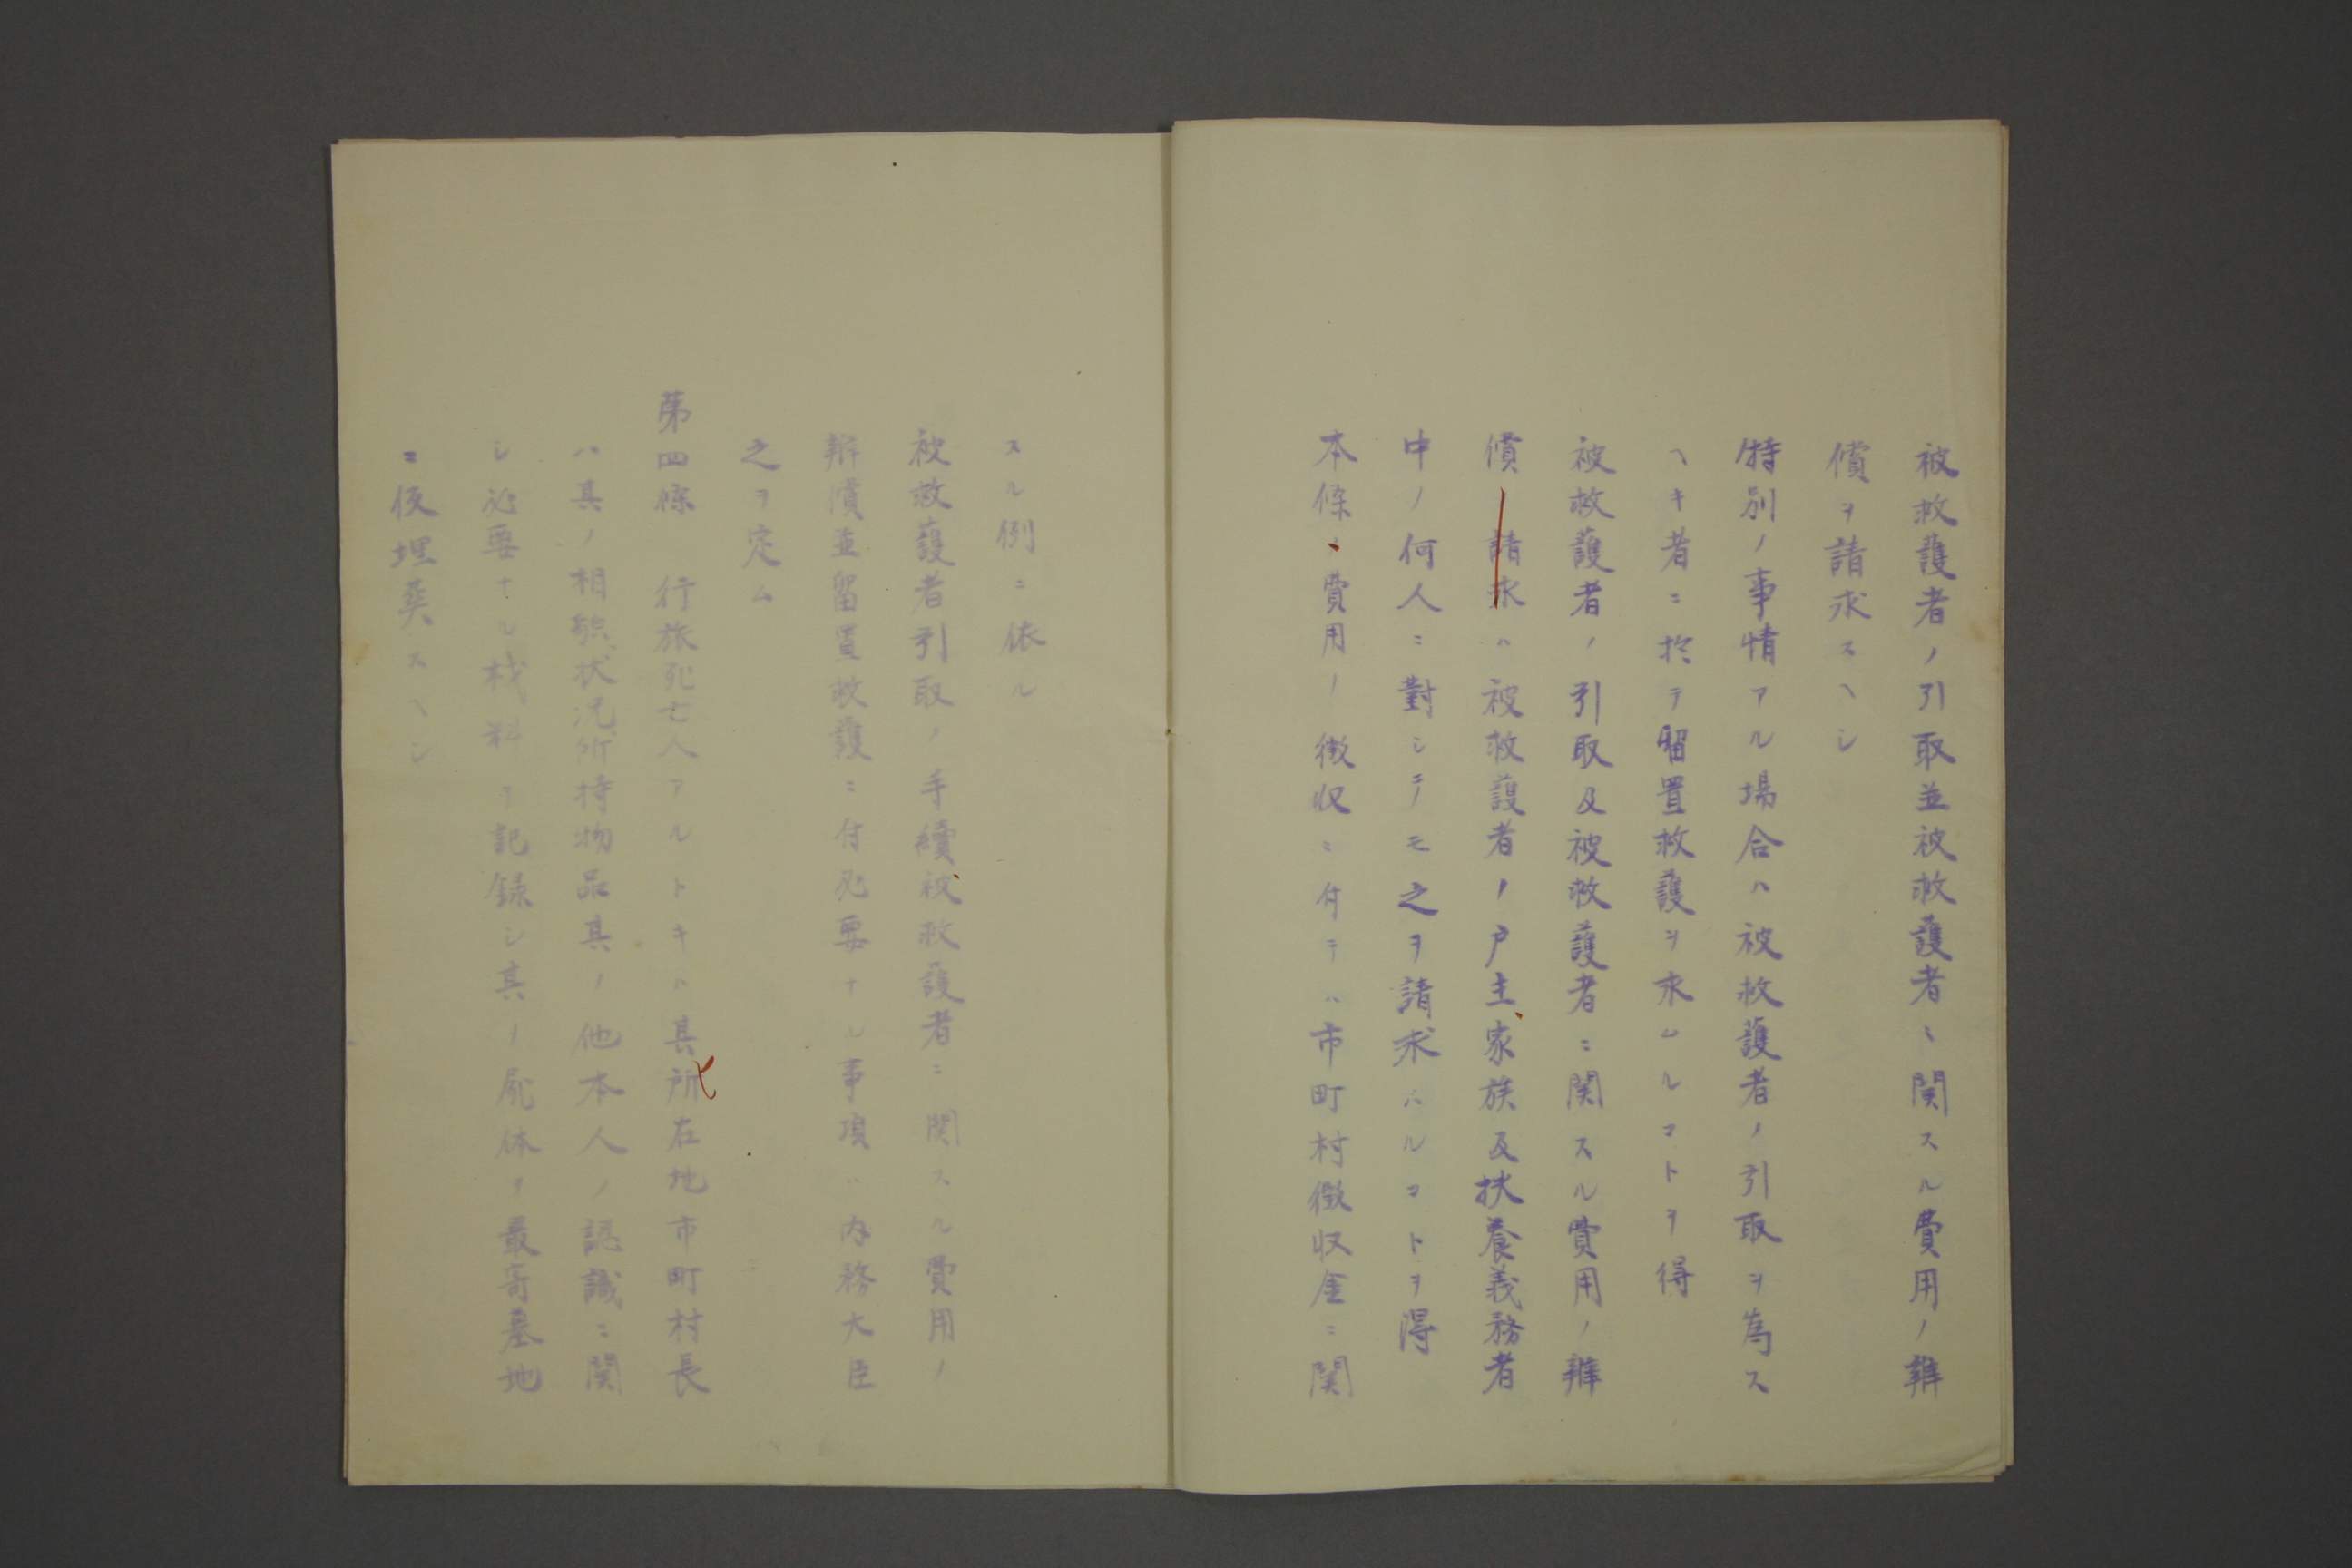 被救護者ノ引取並被救護者ニ関スル費用ノ辨
償ヲ請求スヘシ
特別ノ事情アル場合ハ被救護者ノ引取ヲ為ス
ヘキ者ニ於テ留置救護ヲ求ムルコトヲ得
被救護者ノ引取及被救護者ニ関スル費用ノ辨
償ノ請求ハ被救護者ノ戸主、家族及扶養義務者
中ノ何人ニ對シテノモ之ヲ請求スルコトヲ得
本條、費用ノ徴収ニ付テハ市町村徴収金ニ関
スル例ニ依ル
被救護者引取ノ手續被救護者ニ関スル費用ノ
辨償並留置救護ニ付必要ナル事項ハ内務大臣
之ヲ定ム
第四條 行旅死亡人アルトキハ其所在地市町村長
ハ其ノ相貌、状況、所持物品其ノ他本人ノ認識ニ関
シ必要ナル材料ヲ記録シ其ノ屍体ヲ最寄墓地
ニ仮埋葬スヘシ